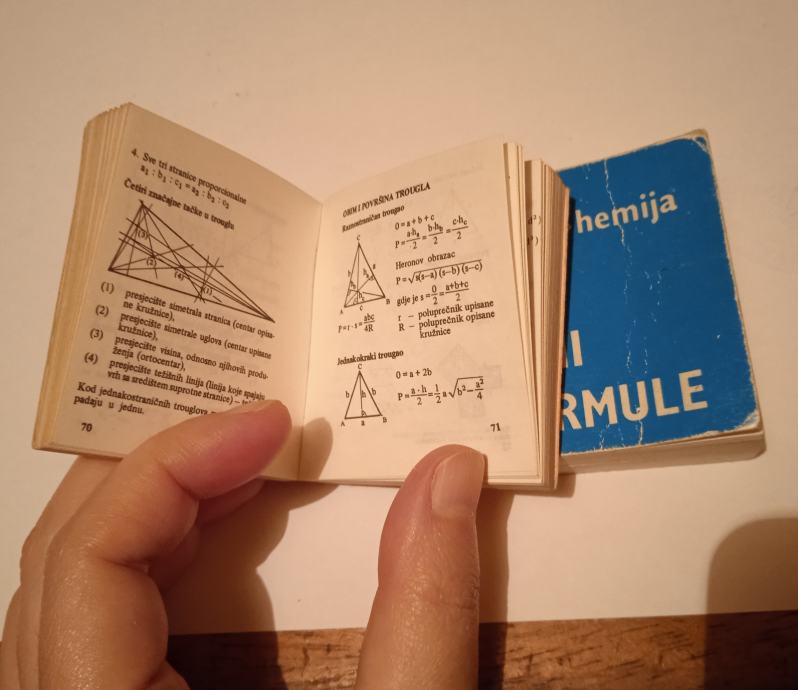 4. Sve tri stranice proporcionalne
a₁ : b₁ : c₁ = a₂ : b₂ : c₂
Četiri značajne tačke u trouglu
(3)
(2)
(4)
(1)
(1) presjecište simetrala stranica (centar opisa-
ne kružnice),
(2) presjecište simetrale uglova (centar upisane
kružnice),
(3) presjecište visina, odnosno njihovih produ-
ženja (ortocentar),
(4) presjecište težišnih linija (linija koje spajaju
vrh sa središtem suprotne stranice) –
Kod jednakostraničnih trouglova
padaju u jednu.
70
OBIM I POVRŠINA TROUGLA
Raznostraničan trougao
C
b
a
A
B
O = a + b + c
P = a·hₐ/2 = b·h_b/2 = c·h_c/2
Heronov obrazac
P = √s(s–a) (s–b) (s–c)
gdje je s = O/2 = a+b+c/2
P = r · s = abc/4R
r – poluprečnik upisane
R – poluprečnik opisane
kružnice
Jednakokraki trougao
C
b h b
A a B
O = a + 2b
P = a · h/2 = 1/2 a √b² – a²/4
71
hemija
I
RMULE